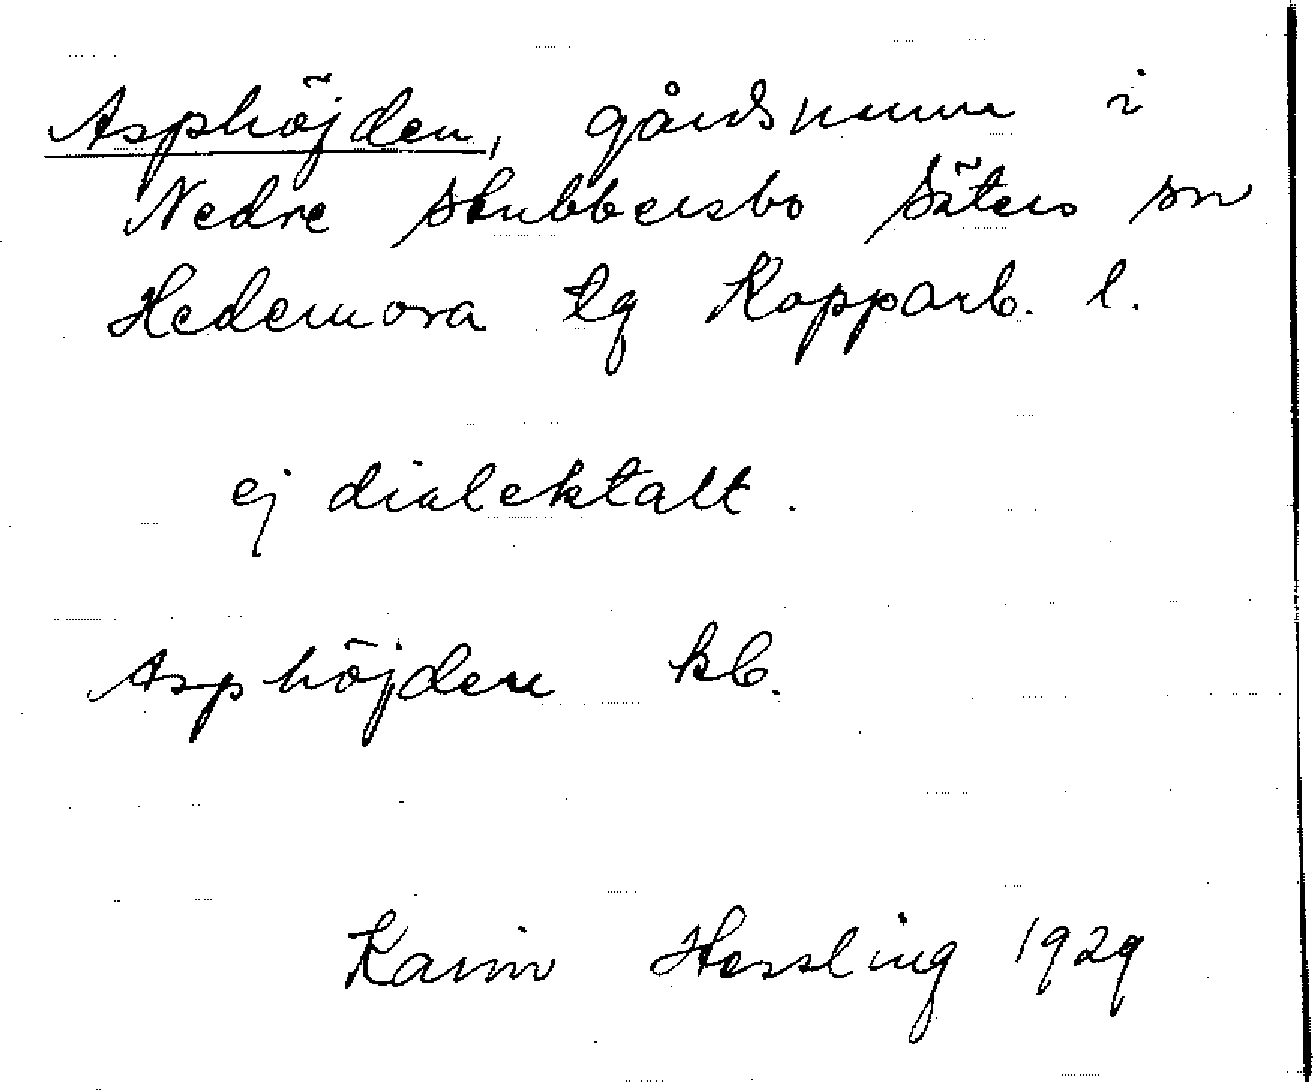 Asphöjden, gårdsnamn i
Nedre Skubbersbo Säters sn
Hedemora tg Kopparb. l.
ej dialektalt.
Asphöjden kb.
Karin Hessling 1929